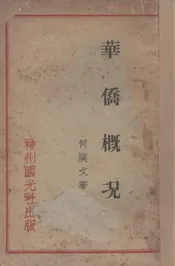 華僑概況
何漢文著
神州國光社出版